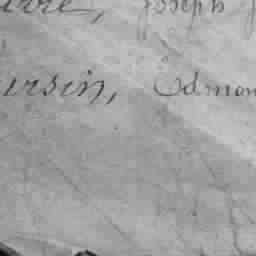 erre, Joseph
ursin, Edmon